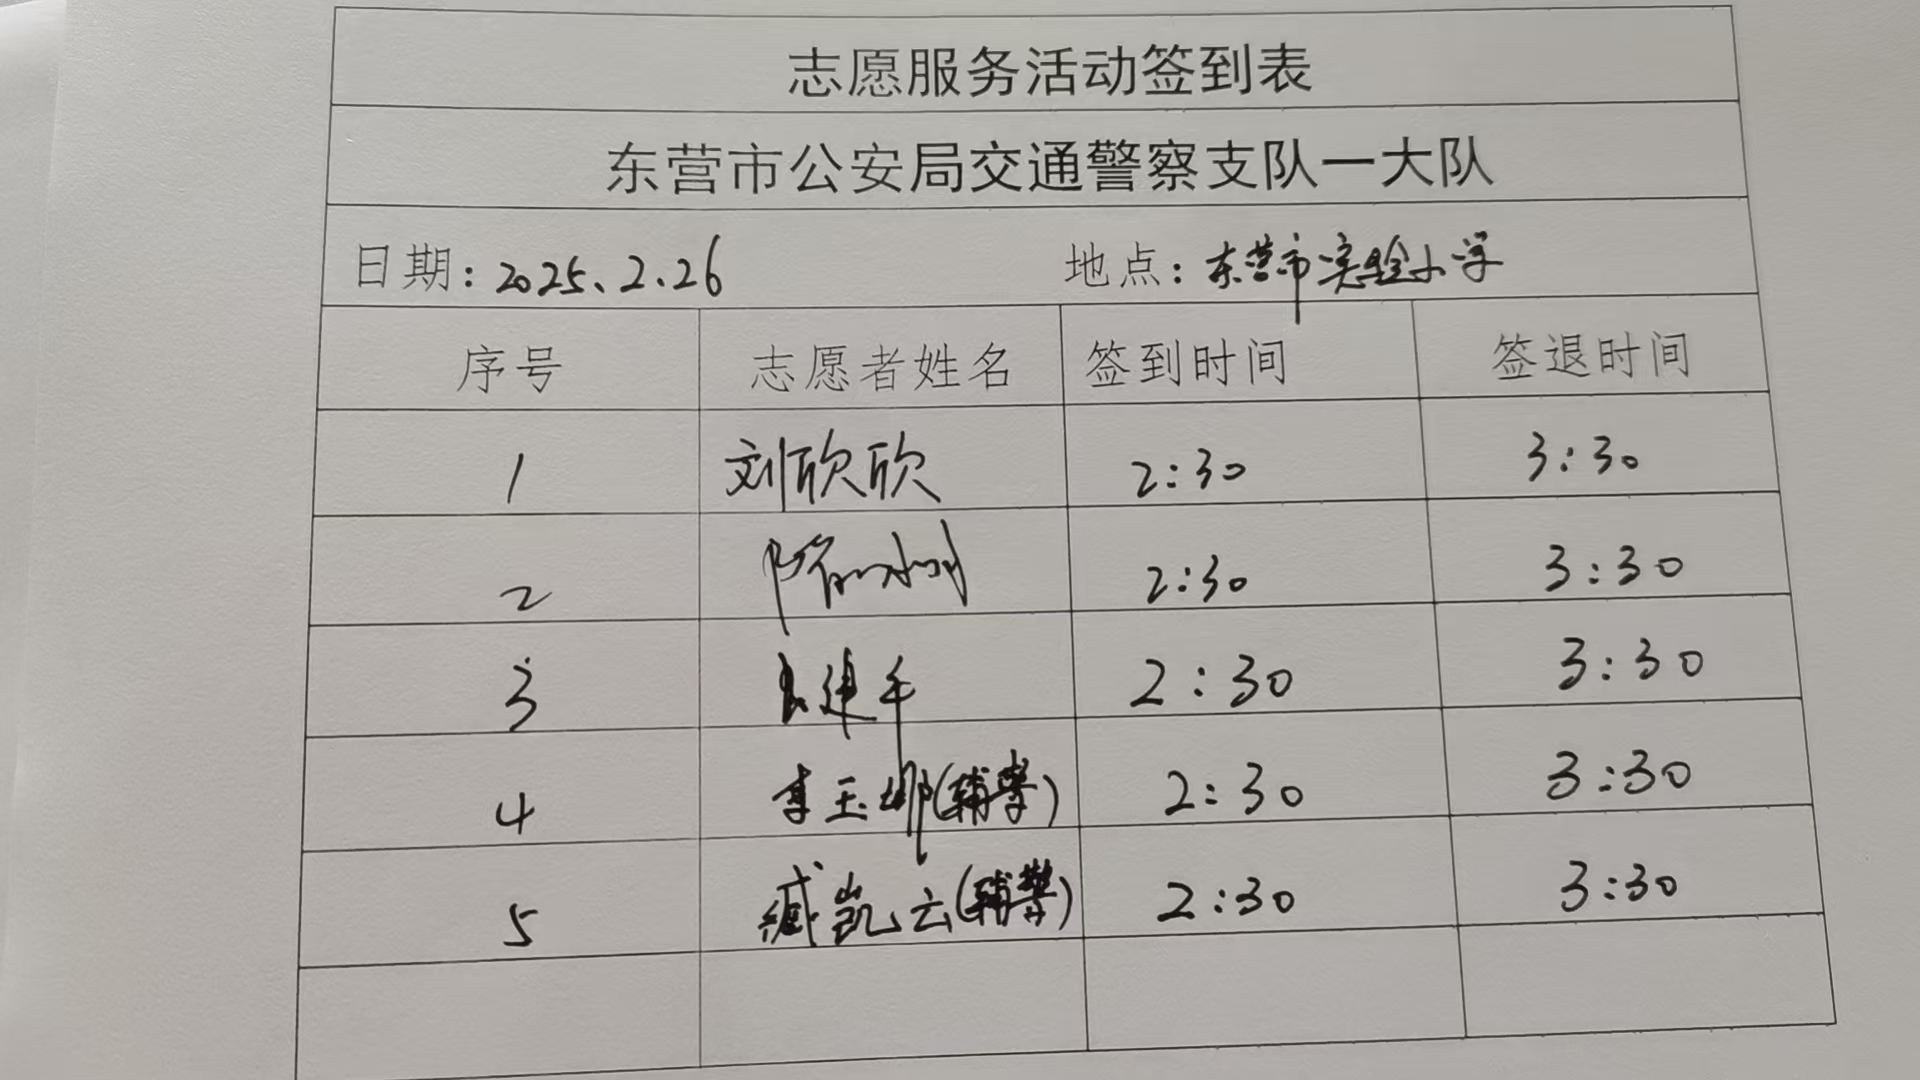 志愿服务活动签到表
东营市公安局交通警察支队一大队
日期：2025.2.26 地点：东营市实验小学
序号 志愿者姓名 签到时间 签退时间
1 刘欣欣 2:30 3:30
2 2:30 3:30
3 建 2:30 3:30
4 李玉娜(辅警) 2:30 3:30
5 臧凯云(辅警) 2:30 3:30